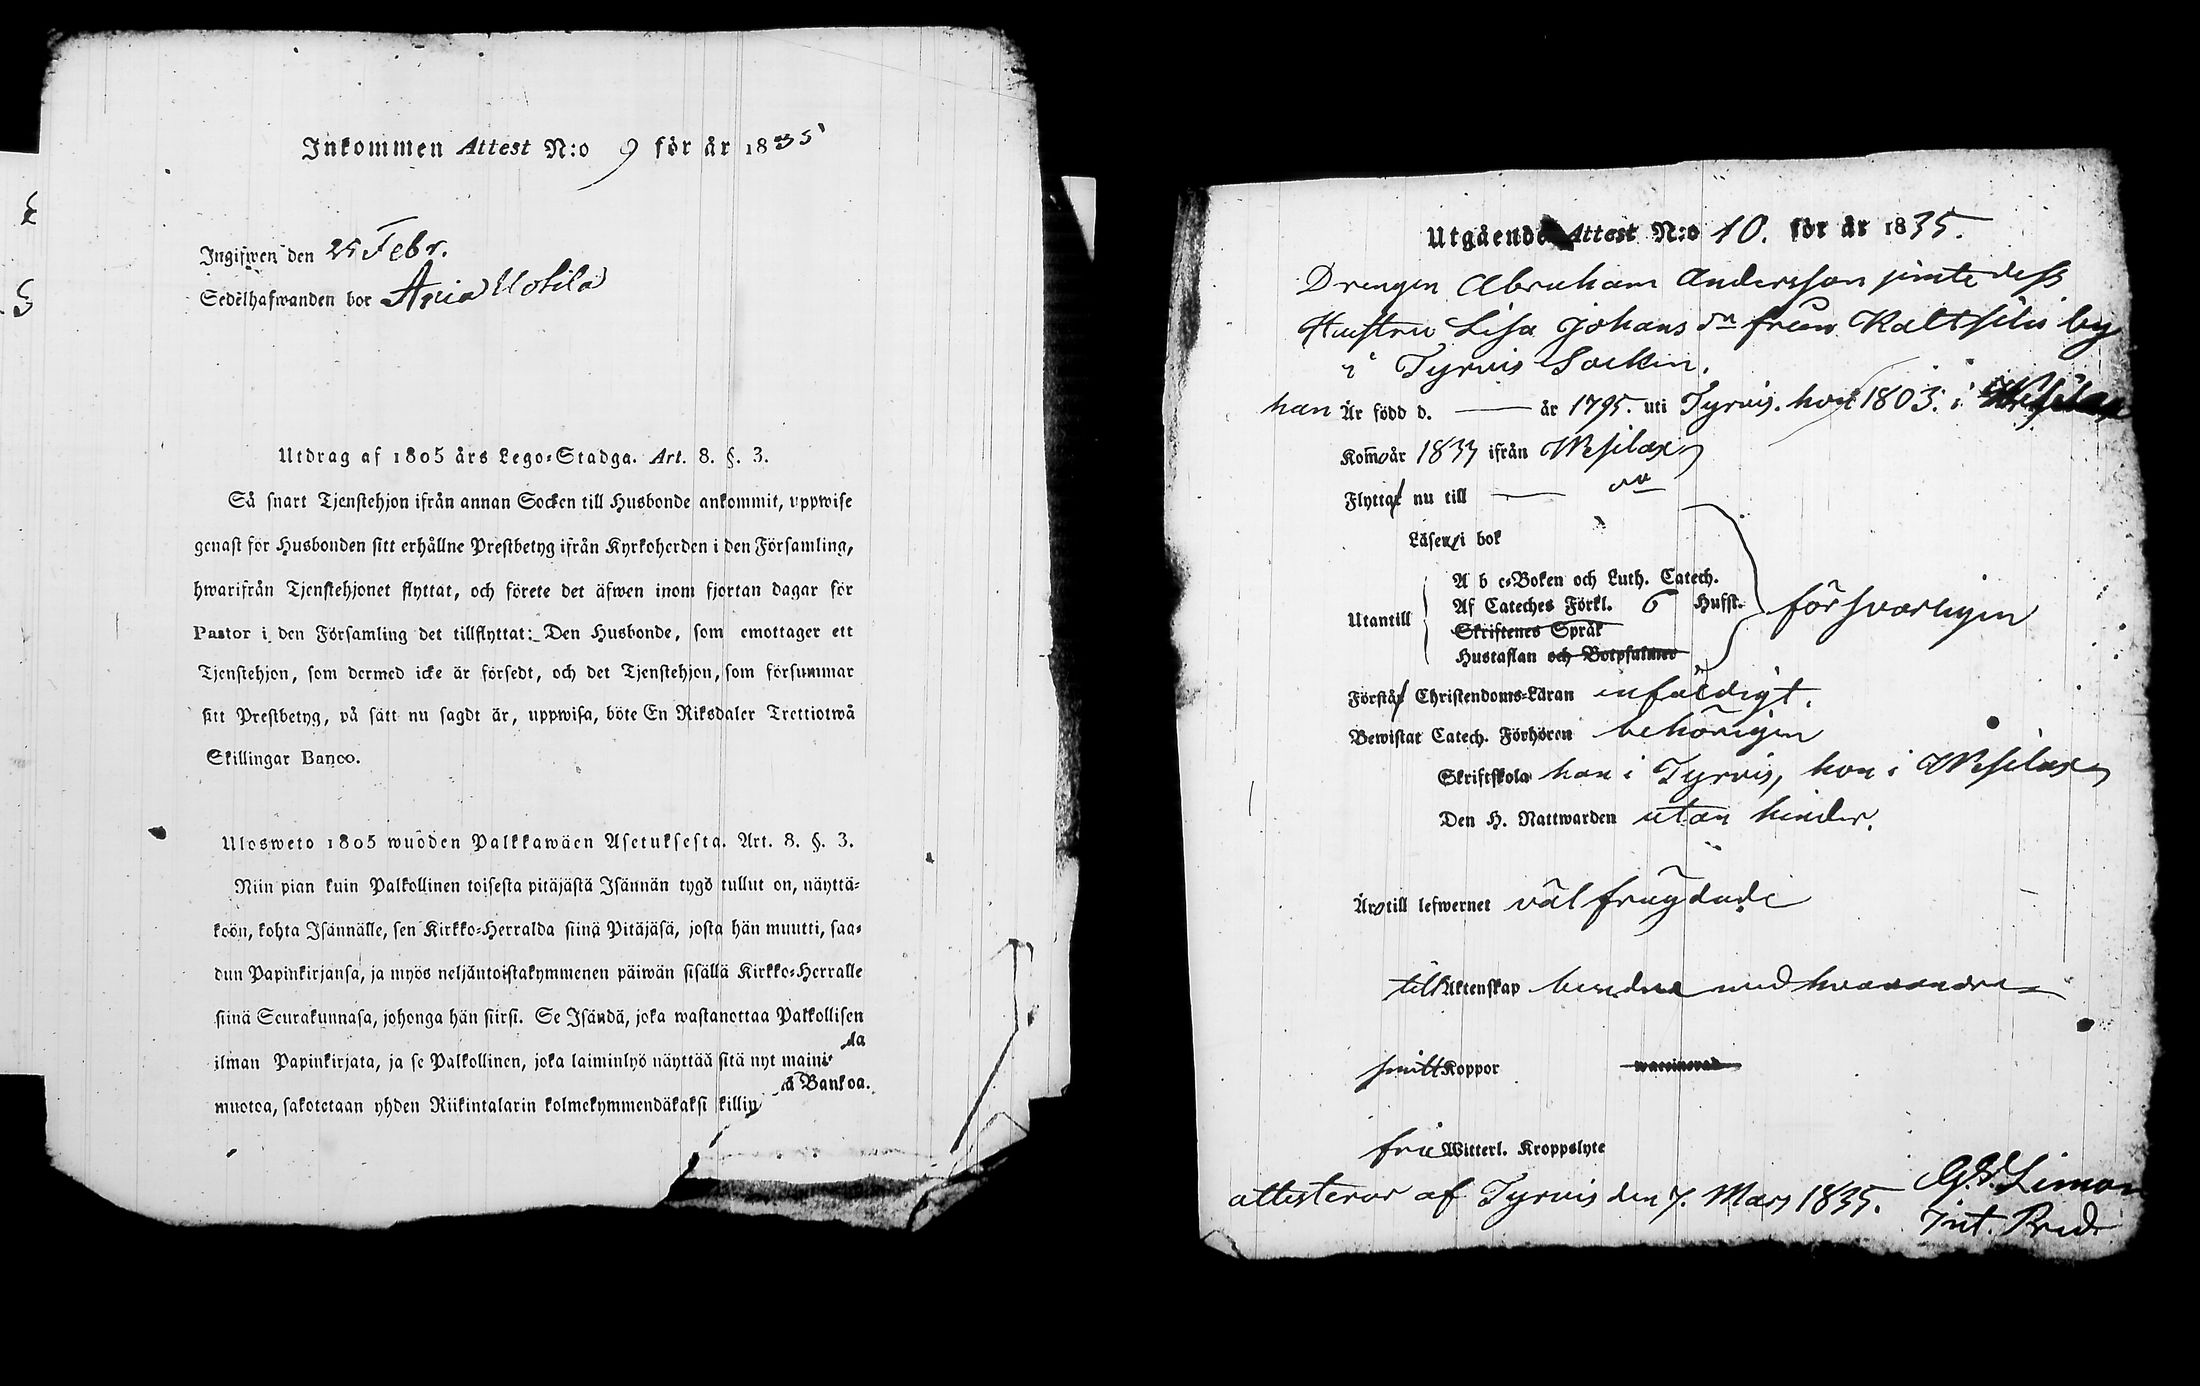 Inkommen Attest N:o 9 för år 1835
Ingifwen den 25 Febr.
Sedelhafwanden bor Ania Uotila
Utdrag af 1805 års Lego-Stadga. Art. 8. §. 3.
Så snart Tjenstehjon ifrån annan Socken till Husbonde ankommit, uppwise
genast för Husbonden sitt erhållne Prestbetyg ifrån Kyrkoherden i den Församling,
hwarifrån Tjenstehjonet flyttat, och förete det äfwen inom fjortan dagar för
Pastor i den Församling det tillflyttat: Den Husbonde, som emottager ett
Tjenstehjon, som dermed icke är försedt, och det Tjenstehjon, som försummar
sitt Prestbetyg, på sätt nu sagdt är, uppwisa, böte En Riksdaler Trettiotwå
Skillingar Banco.
Ulosweto 1805 wuoden Palkkawäen Asetuksesta. Art. 8. §. 3.
Niin pian kuin Palkollinen toisesta pitäjästä Isännän tygö tullut on, näyttä-
köön, kohta Isännälle, sen Kirkko-Herralda siinä Pitäjäsä, josta hän muutti, saa-
dun Papinkirjansa, ja myös neljäntoistakymmenen päiwän sisällä Kirkko-Herralle
siinä Seurakunnasa, johonga hän siirsi. Se Isändä, joka wastanottaa Palkollisen
ilman Papinkirjata, ja se Palkollinen, joka laiminlyö näyttää sitä nyt maini-
da
muotoa, sakotetaan yhden Riikintalarin kolmekymmendäkaksi killin
ä Bankoa.
Utgående Attest N:o 10. för år 1835.
Drengen Abraham Andersson jemte dess
Hustru Lisa Johans dr från Kaltsila by
i Tyrvis Socken.
han Är född d. — år 1795. uti Tyrvis. hon 1803. i Wesilax
Kommo år 1833 ifrån Wesilax
Flytta nu till —
Läsen i bok
A b c-Boken och Luth. Catech.
Utantill Af Cateches Förkl. 6 Hufst. försvarligen
Skriftenes Språk
Hustaflan och Botpsalmer
Förstå Christendoms-Läran enfaldigt.
Bewistat Catech. Förhören behörigen
Skriftskola han i Tyrvis, hon i Wesilax
Den H. Nattwarden utan hinder.
Äro till lefwernet väl frägdade
till Äktenskap bundna med hvarandra
haft Koppor waccinerad
frie Witterl. Kroppslyte
attesterar af Tyrvis den 7. Mars 1835.
Limon